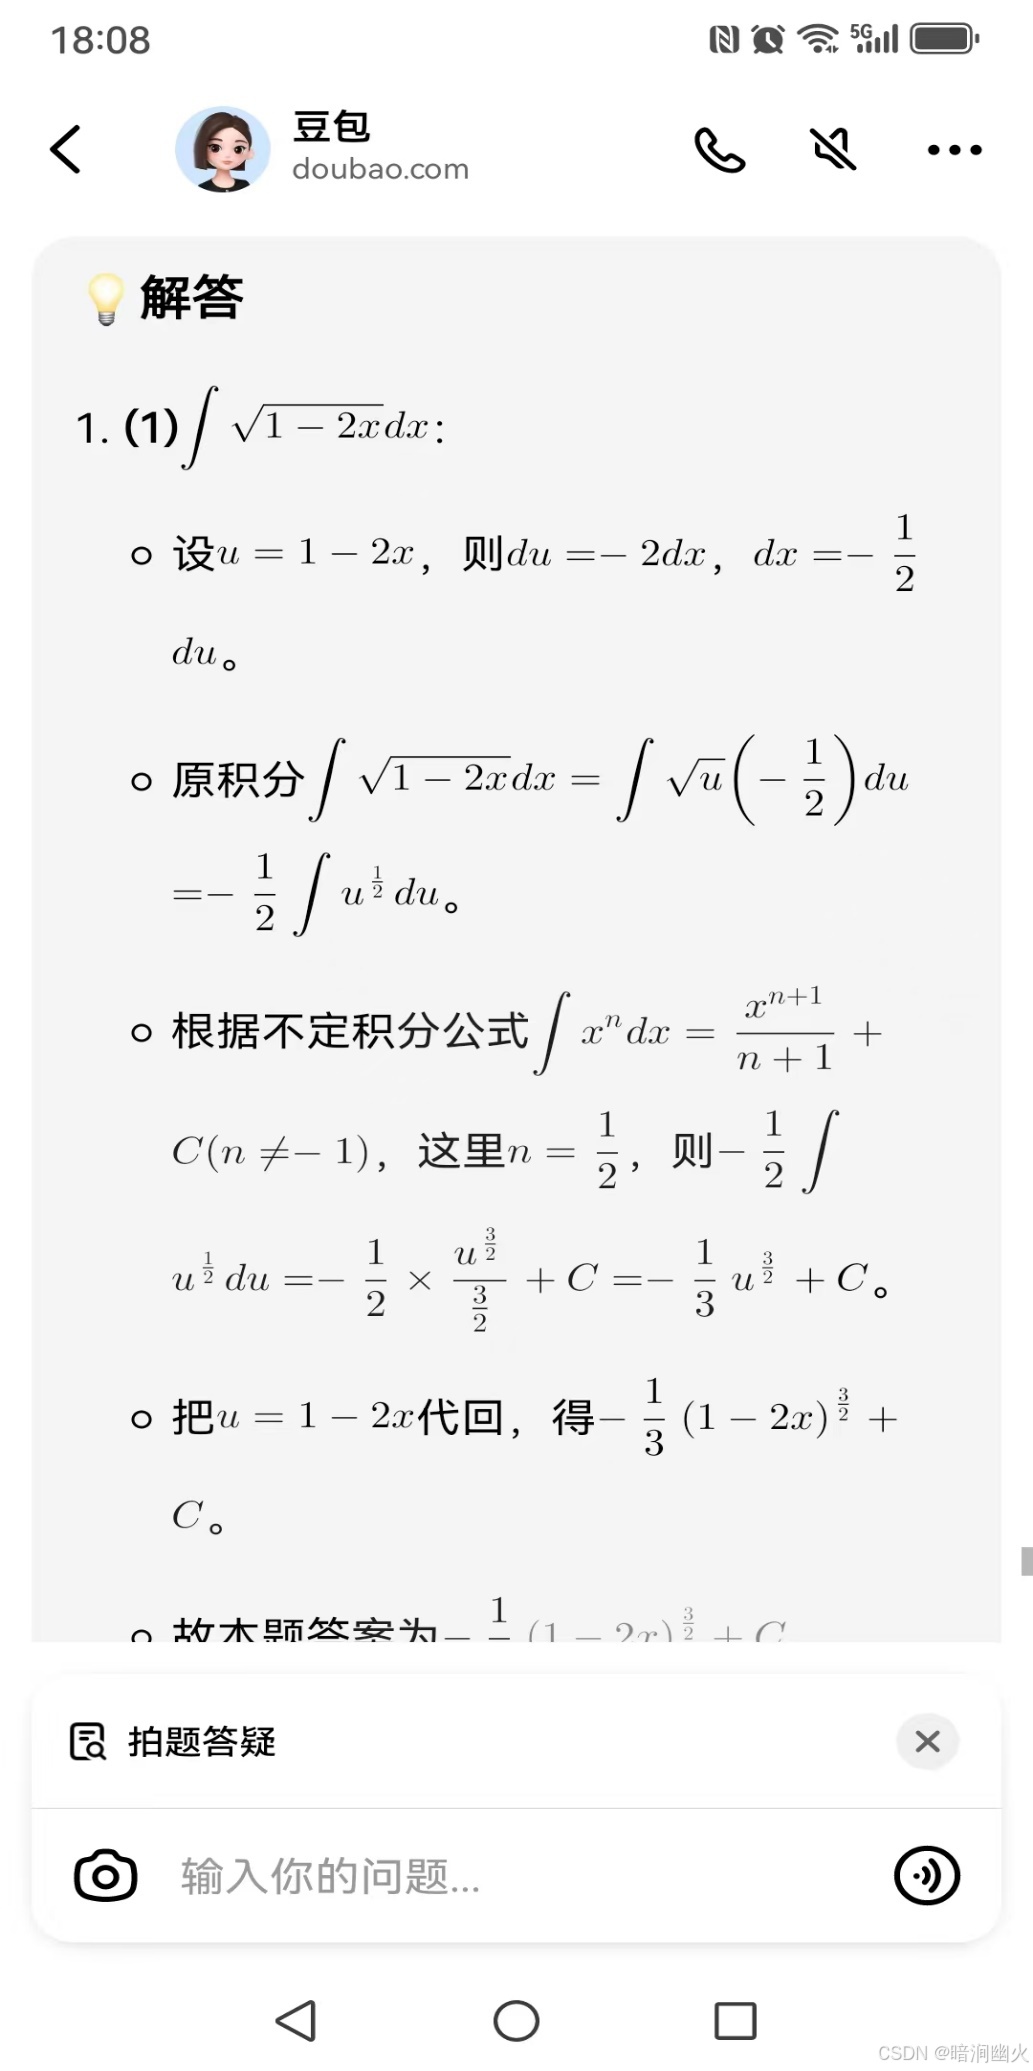 18:08
5G
豆包
doubao.com
💡 解答
1. (1)∫ √(1 − 2x)dx：
设u = 1 − 2x，则du =− 2dx，dx =− 1/2
du。
原积分∫ √(1 − 2x)dx = ∫ √u(− 1/2)du
=− 1/2 ∫ u^(1/2) du。
根据不定积分公式∫ x^n dx = x^(n+1)/(n + 1) +
C(n ≠− 1)，这里n = 1/2，则− 1/2 ∫
u^(1/2) du =− 1/2 × u^(3/2)/(3/2) + C =− 1/3 u^(3/2) + C。
把u = 1 − 2x代回，得− 1/3 (1 − 2x)^(3/2) +
C。
故本题答案为− 1 (1 − 2x)^(3/2) + C
拍题答疑
输入你的问题...
CSDN @暗涧幽火